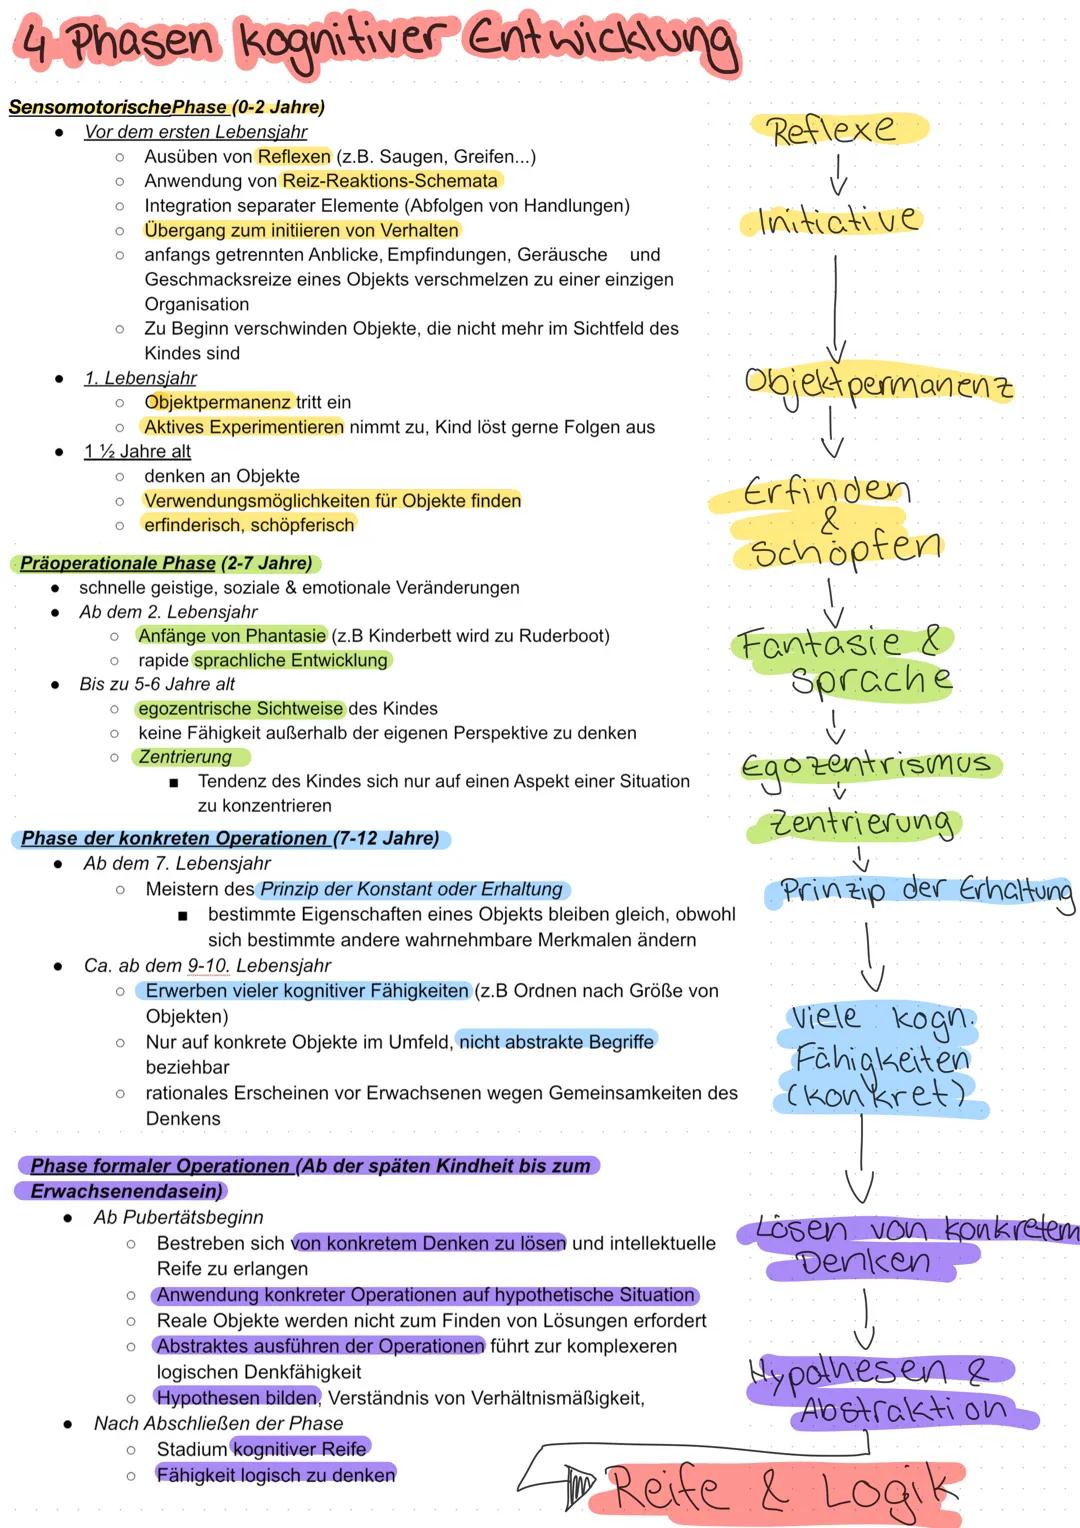 4 Phasen kognitiver Entwicklung
Sensomotorische Phase (0-2 Jahre)
● Vor dem ersten Lebensjahr
○ Ausüben von Reflexen (z.B. Saugen, Greifen...)
○ Anwendung von Reiz-Reaktions-Schemata
○ Integration separater Elemente (Abfolgen von Handlungen)
○ Übergang zum initiieren von Verhalten
○ anfangs getrennten Anblicke, Empfindungen, Geräusche und
Geschmacksreize eines Objekts verschmelzen zu einer einzigen
Organisation
○ Zu Beginn verschwinden Objekte, die nicht mehr im Sichtfeld des
Kindes sind
● 1. Lebensjahr
○ Objektpermanenz tritt ein
○ Aktives Experimentieren nimmt zu, Kind löst gerne Folgen aus
● 1 ½ Jahre alt
○ denken an Objekte
○ Verwendungsmöglichkeiten für Objekte finden
○ erfinderisch, schöpferisch
Präoperationale Phase (2-7 Jahre)
● schnelle geistige, soziale & emotionale Veränderungen
● Ab dem 2. Lebensjahr
○ Anfänge von Phantasie (z.B Kinderbett wird zu Ruderboot)
○ rapide sprachliche Entwicklung
● Bis zu 5-6 Jahre alt
○ egozentrische Sichtweise des Kindes
○ keine Fähigkeit außerhalb der eigenen Perspektive zu denken
○ Zentrierung
■ Tendenz des Kindes sich nur auf einen Aspekt einer Situation
zu konzentrieren
Phase der konkreten Operationen (7-12 Jahre)
● Ab dem 7. Lebensjahr
○ Meistern des Prinzip der Konstant oder Erhaltung
■ bestimmte Eigenschaften eines Objekts bleiben gleich, obwohl
sich bestimmte andere wahrnehmbare Merkmalen ändern
● Ca. ab dem 9-10. Lebensjahr
○ Erwerben vieler kognitiver Fähigkeiten (z.B Ordnen nach Größe von
Objekten)
○ Nur auf konkrete Objekte im Umfeld, nicht abstrakte Begriffe
beziehbar
○ rationales Erscheinen vor Erwachsenen wegen Gemeinsamkeiten des
Denkens
Phase formaler Operationen (Ab der späten Kindheit bis zum
Erwachsenendasein)
● Ab Pubertätsbeginn
○ Bestreben sich von konkretem Denken zu lösen und intellektuelle
Reife zu erlangen
○ Anwendung konkreter Operationen auf hypothetische Situation
○ Reale Objekte werden nicht zum Finden von Lösungen erfordert
○ Abstraktes ausführen der Operationen führt zur komplexeren
logischen Denkfähigkeit
○ Hypothesen bilden, Verständnis von Verhältnismäßigkeit,
● Nach Abschließen der Phase
○ Stadium kognitiver Reife
○ Fähigkeit logisch zu denken
Reflexe
Initiative
Objektpermanenz
Erfinden
&
Schöpfen
Fantasie &
Sprache
Egozentrismus
Zentrierung
Prinzip der Erhaltung
Viele kogn.
Fähigkeiten
(konkret)
Lösen von konkretem
Denken
Hypothesen &
Abstraktion
Reife & Logik